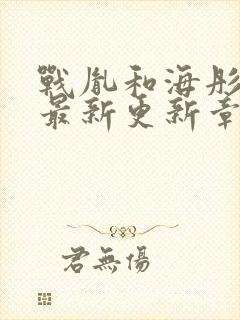 戰胤和海彤
最新更新章
君無傷